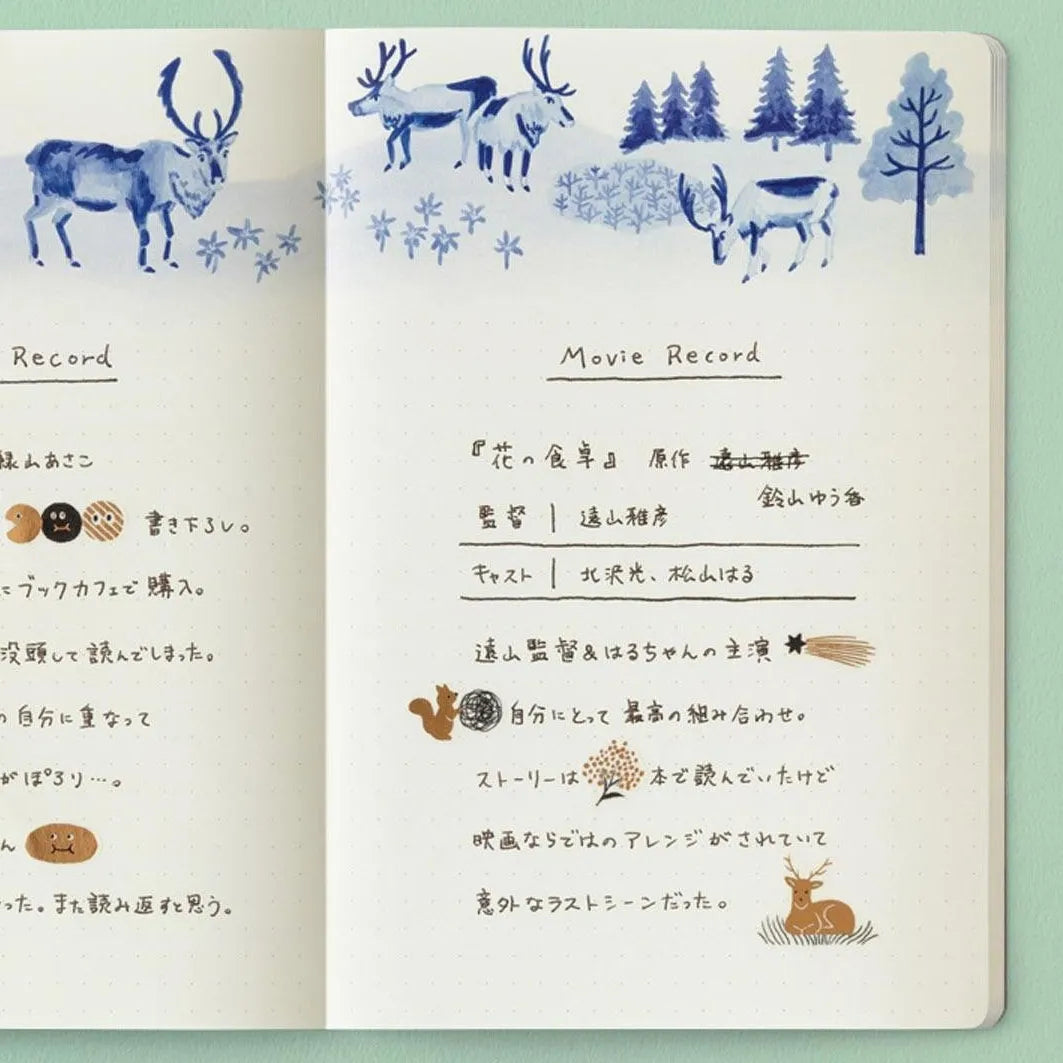 Record
緑山あさこ
書き下ろし。
にブックカフェで購入。
没頭して読んでしまった。
の自分に重なって
がぽろり…。
ん
った。また読み返すと思う。
Movie Record
『花の食卓』 原作 遠山雅彦
鈴山ゆう香
監督 | 遠山雅彦
キャスト | 北沢光、松山はる
遠山監督&はるちゃんの主演
自分にとって最高の組み合わせ。
ストーリーは 本で読んでいたけど
映画ならではのアレンジがされていて
意外なラストシーンだった。